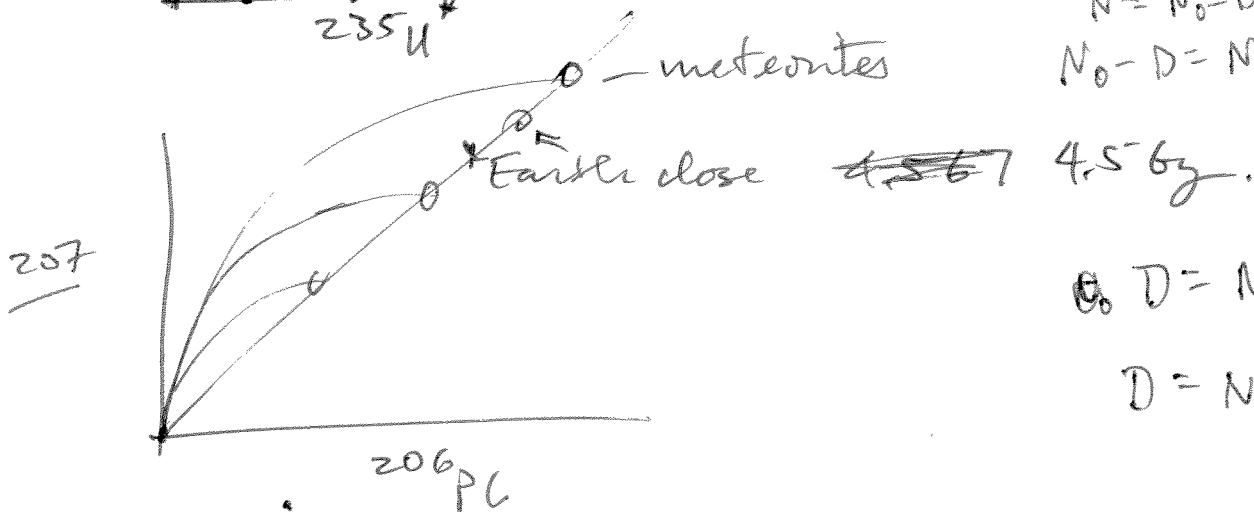 235U*
N = N₀ - D
N₀ - D = N
meteorites
Earth close 4.567 4.5 Gy.
207
D = N
D = N
206Pb